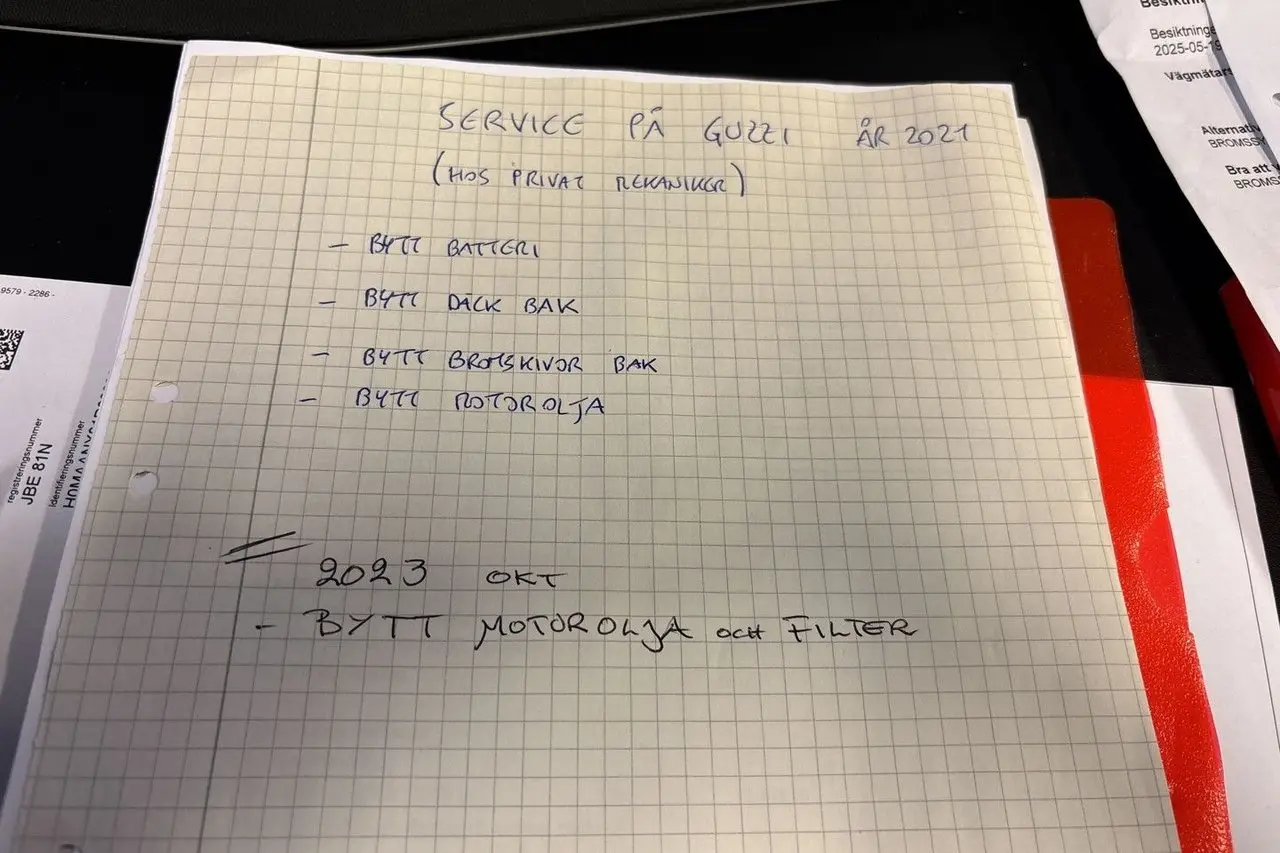 SERVICE PÅ GUZZI ÅR 2021
(HOS PRIVAT MEKANIKER)
- BYTT BATTERI
- BYTT DÄCK BAK
- BYTT BROMSKIVOR BAK
- BYTT MOTOROLJA
2023 OKT
- BYTT MOTOROLJA OCH FILTER
9579 - 2286 -
registreringsnummer
JBE 81N
Identifieringsnummer
2025-05-19
Vägmätars
Alternativ
BROMSSY
Bra att v
BROMS